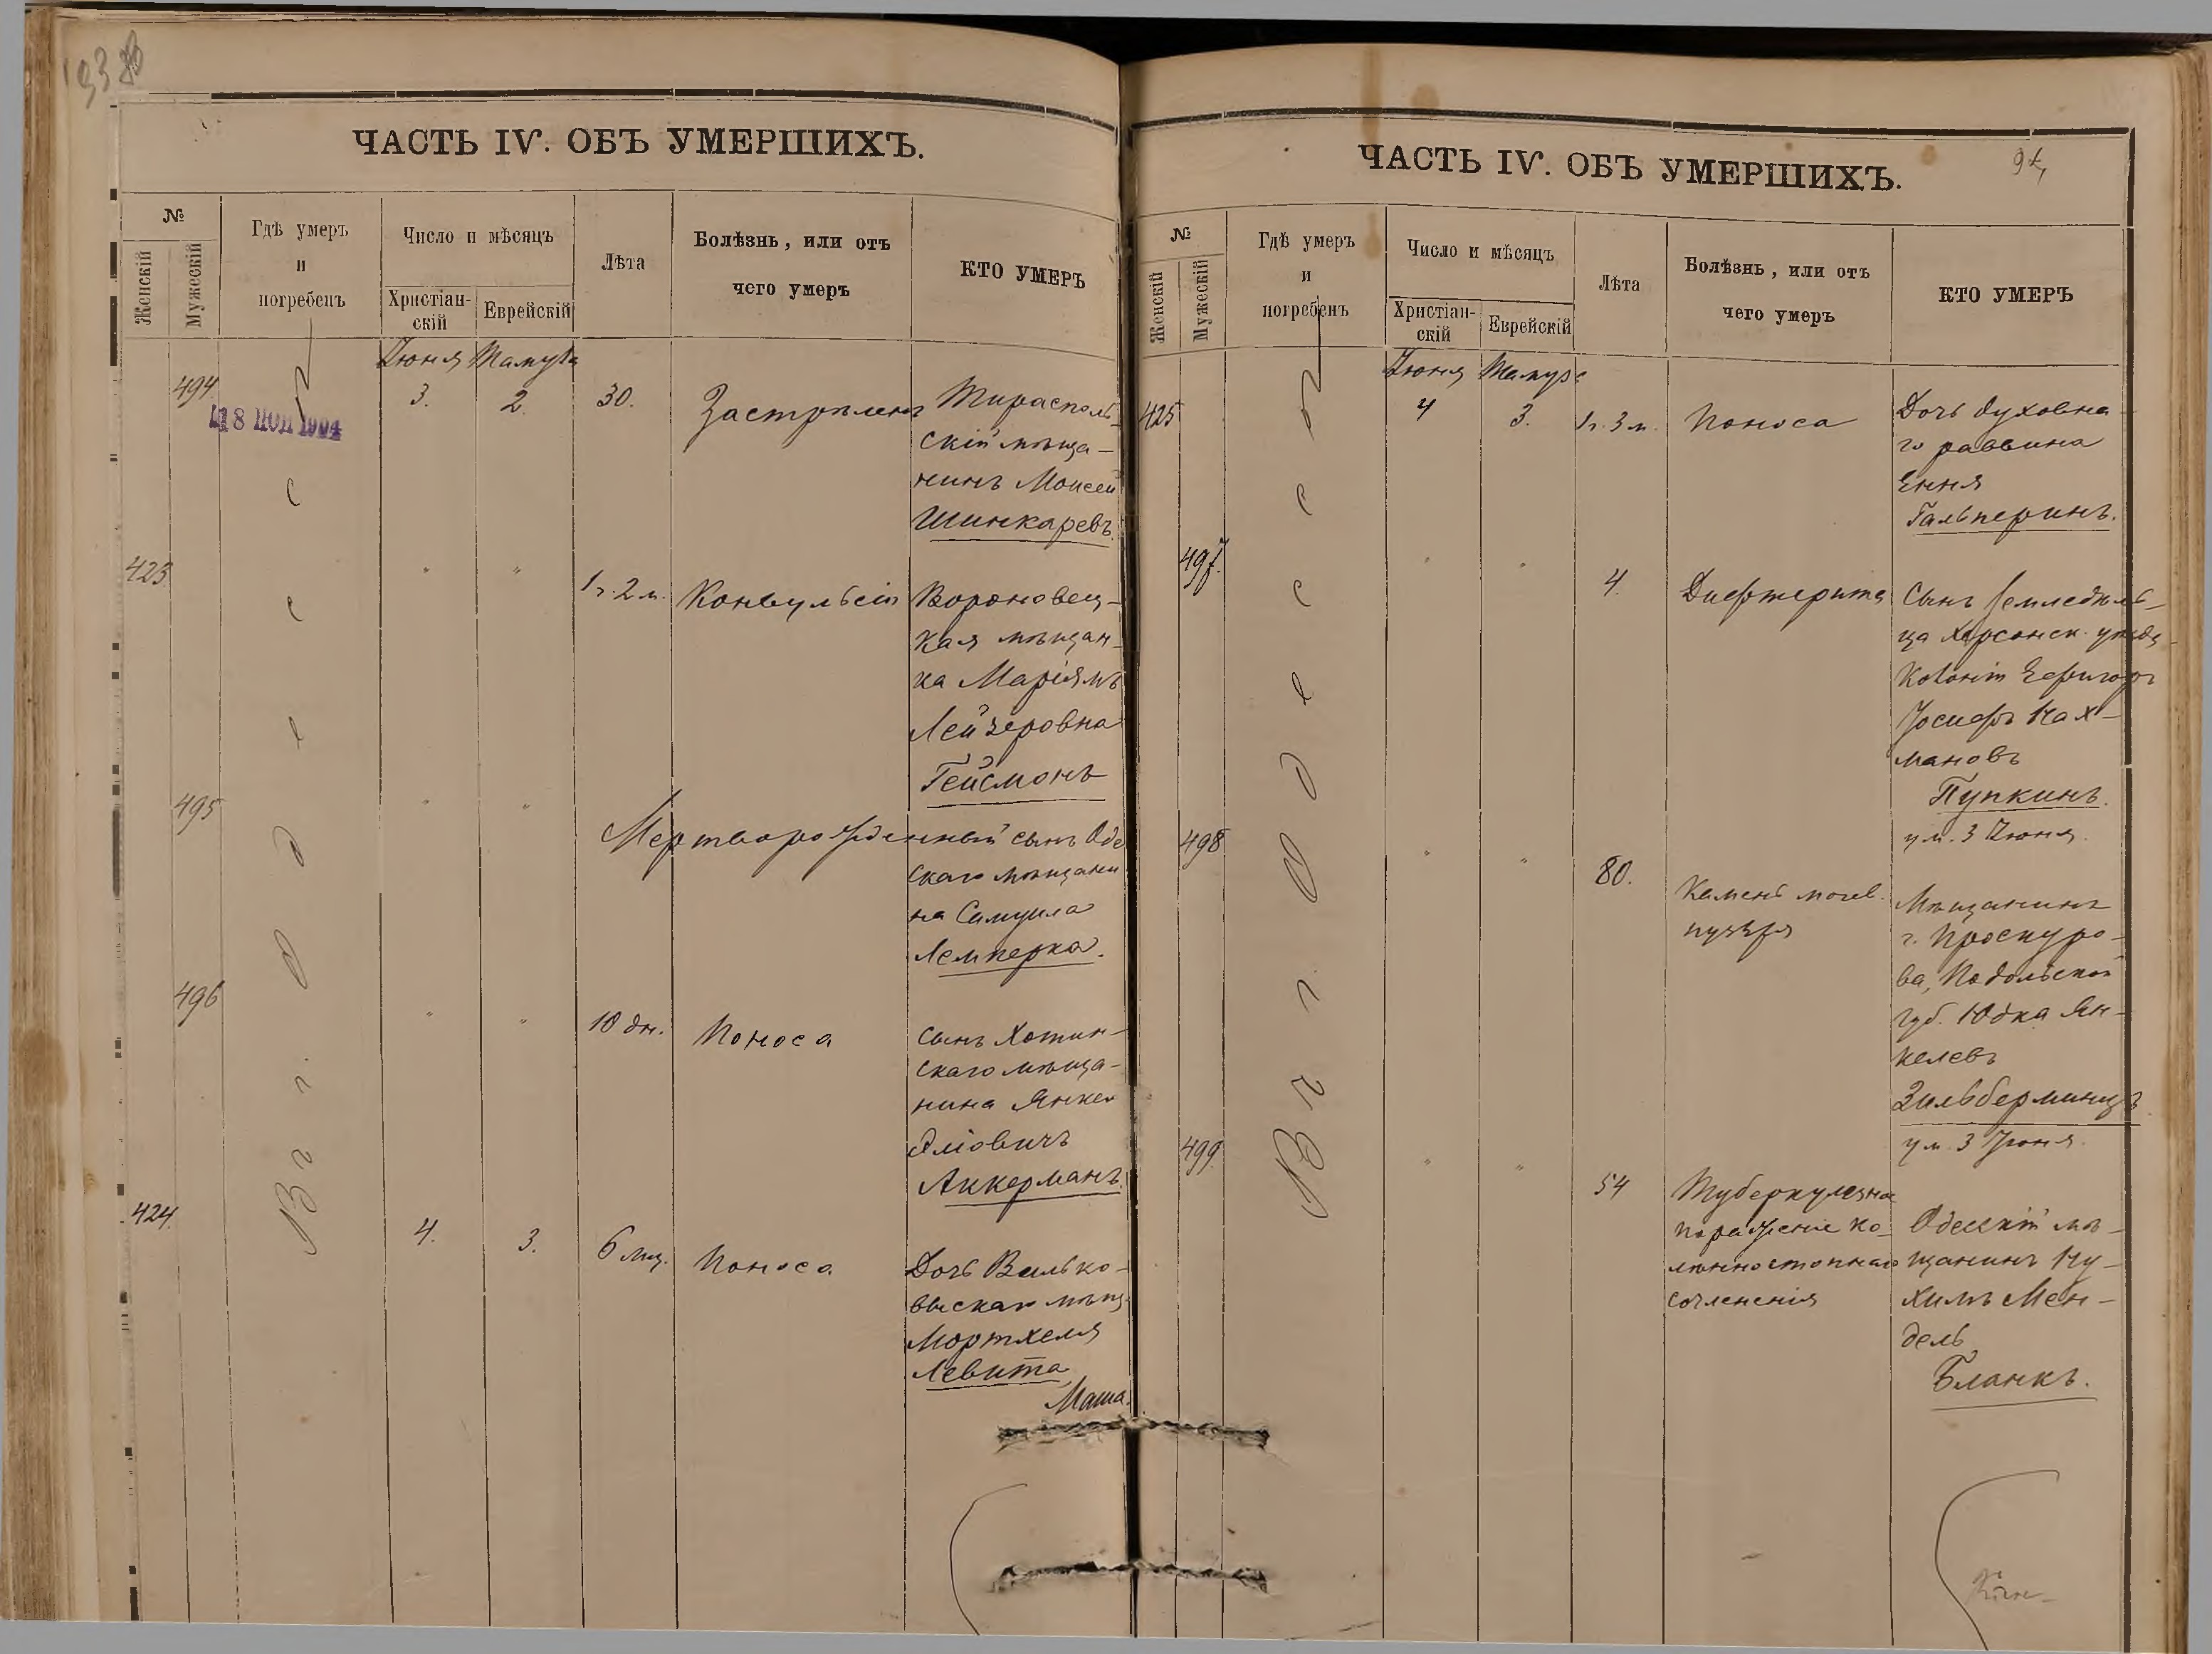 ЧАСТЬ IV. ОБЪ УМЕРШИХЪ.
№
Женскій
Мужескій
Гдѣ умеръ
и
погребенъ
Число и мѣсяцъ
Христіан-
скій
Еврейскій
Лѣта
Болѣзнь, или отъ
чего умеръ
КТО УМЕРЪ
Въ г. Одессѣ
Іюня Тамуза
494 3. 2. 30. Застрѣленъ Тирасполь-
скій мѣща-
нинъ Моисей
Шинкаревъ.
423 " " 1 г. 2 м. Конвульсіи Вороновец-
кая мѣщан-
ка Маріямъ
Лейзеровна
Гейсмонъ
495 " " Мертворожденный сынъ Оде
скаго мѣщани
на Самуила
Лемперка.
496 " " 10 дн. Поноса Сынъ Хотин-
скаго мѣща-
нина Янкель
Эліовичъ
Аккерманъ.
424. 4. 3. 6 мц. Поноса Дочь Вилько-
выскаго мѣщ.
Мортхеля
Левита
Маша.
ЧАСТЬ IV. ОБЪ УМЕРШИХЪ.
94
№
Женскій
Мужескій
Гдѣ умеръ
и
погребенъ
Число и мѣсяцъ
Христіан-
скій
Еврейскій
Лѣта
Болѣзнь, или отъ
чего умеръ
КТО УМЕРЪ
Въ г. Одессѣ
Іюня Тамуза
425 4 3. 1 г. 3 м. Поноса Дочь духовна-
го раввина
Ення
Гальперинъ.
497. " " 4. Дифтерита Сынъ земледѣль-
ца Херсонск. уѣзда
Колоніи
Іосифъ Нах-
мановъ
Пупкинъ.
ум. 3 Іюня.
498 " " 80. Камень мочев.
пузыря
Мѣщанинъ
г. Проскуро-
ва, Подольской
губ. Юдка Ян-
келевъ
Зильберминцъ
ум. 3 Іюня.
499 " " 54 Туберкулезное
пораженіе ко-
лѣнностопнаго
сочлененія
Одесскій мѣ-
щанинъ Ну-
химъ Мен-
дель
Бланкъ.